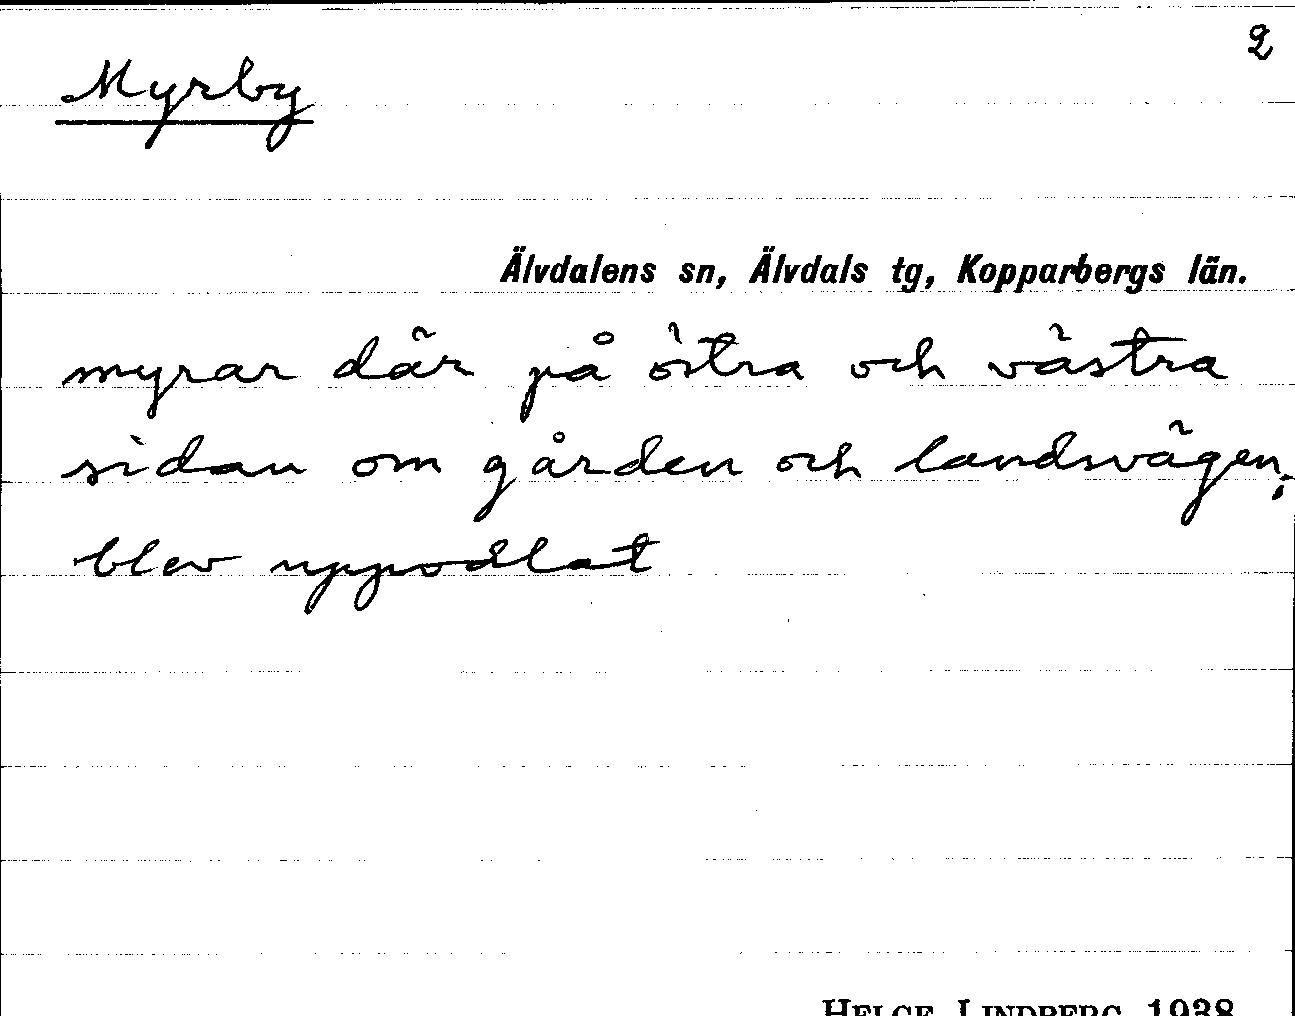 2
Myrby
Älvdalens sn, Älvdals tg, Kopparbergs län.
myrar där på östra och västra
sidan om gården och landsvägen;
blev uppodlat
HELGE LINDBERG 1938